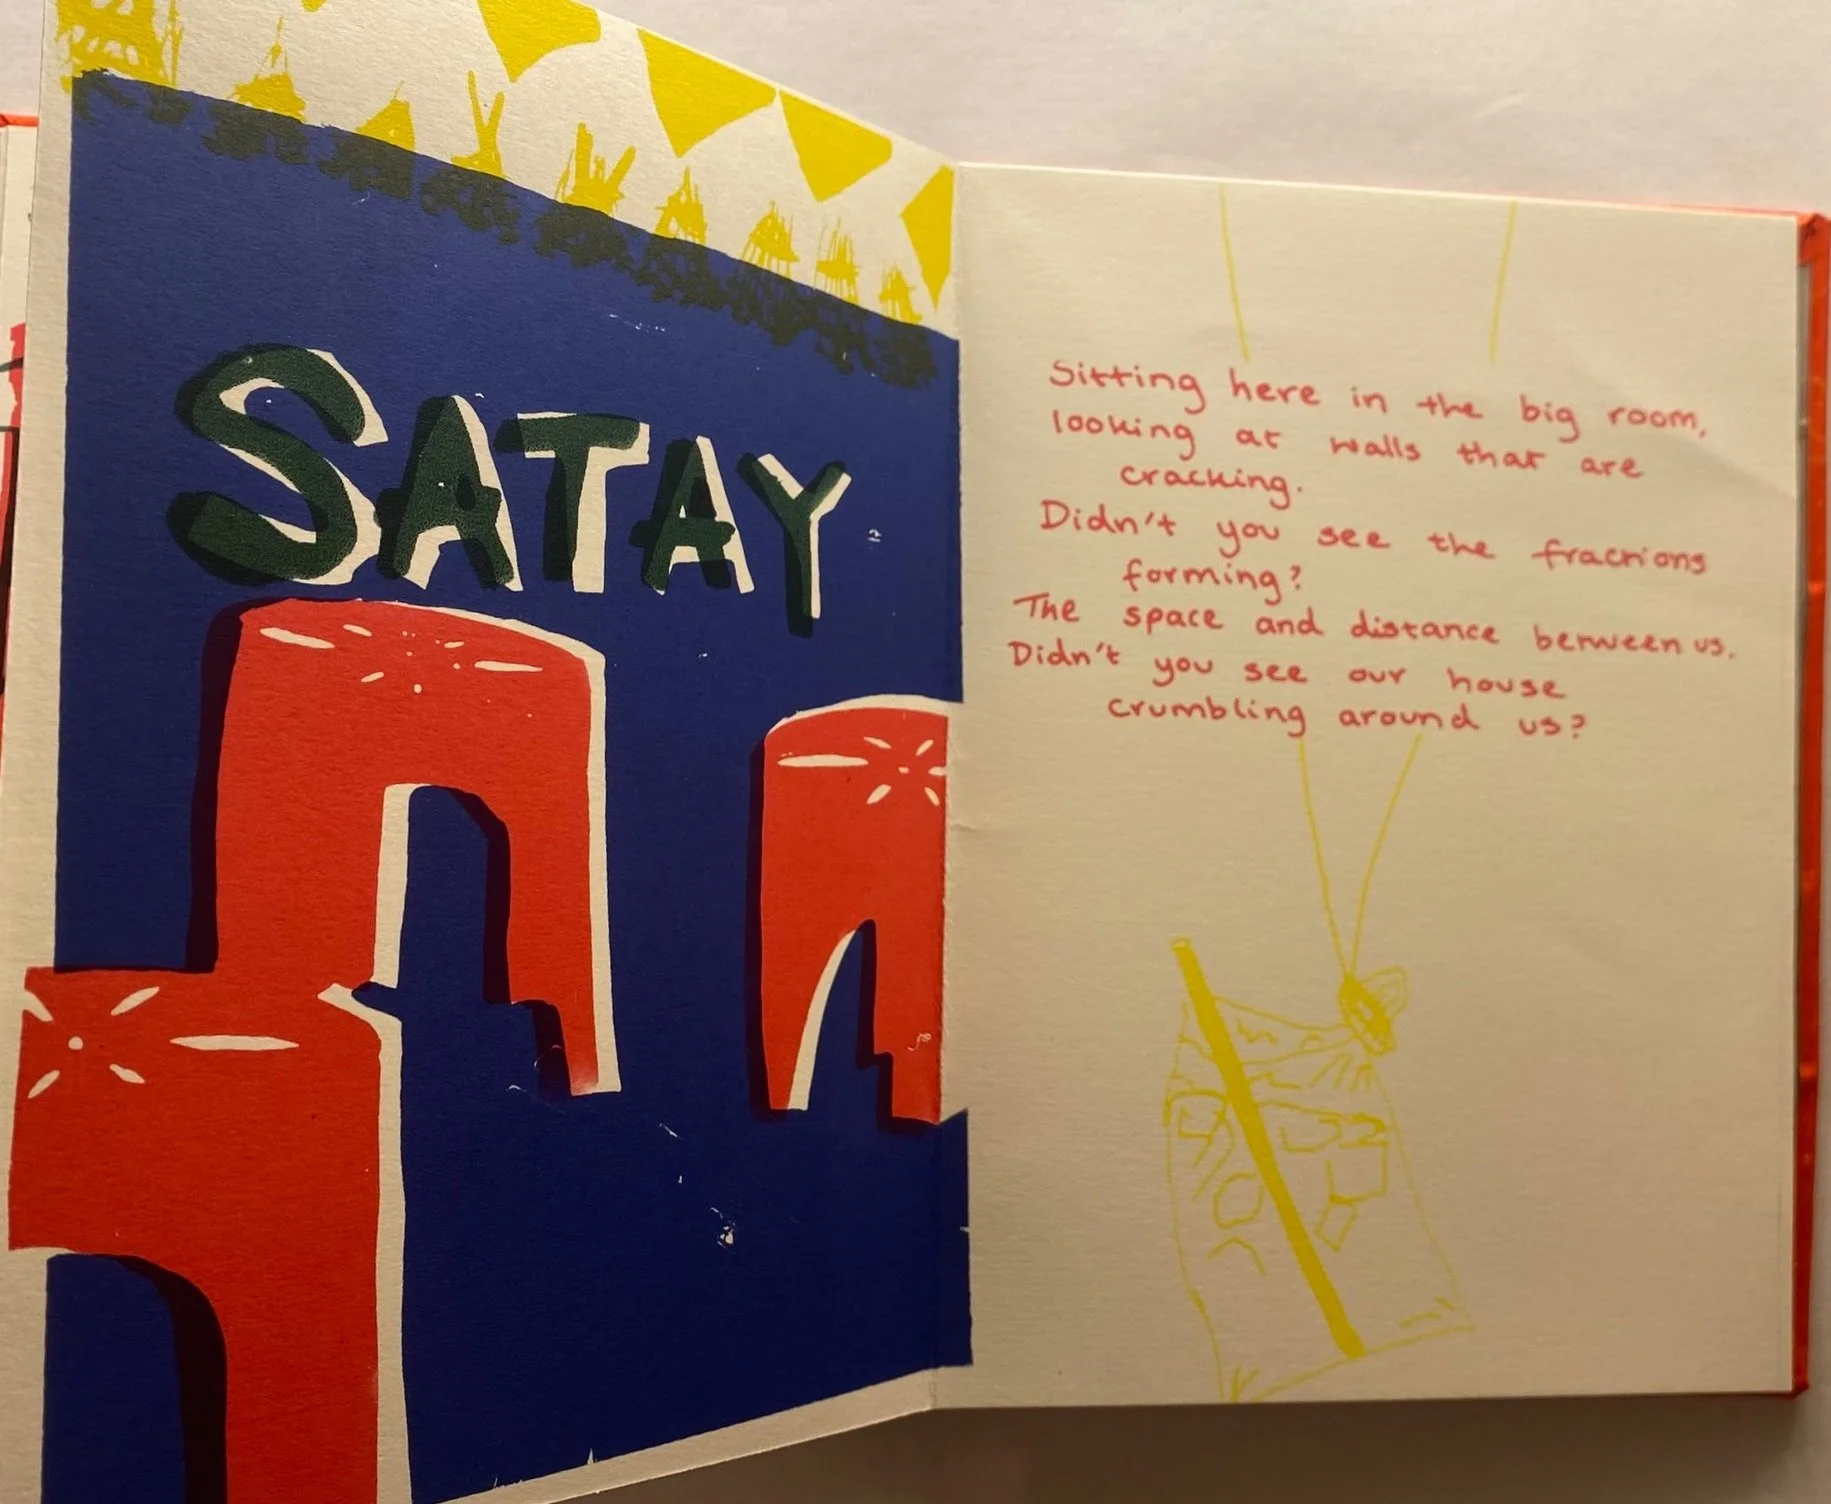 SATAY
Sitting here in the big room,
looking at walls that are
cracking.
Didn't you see the fractions
forming?
The space and distance between us.
Didn't you see our house
crumbling around us?